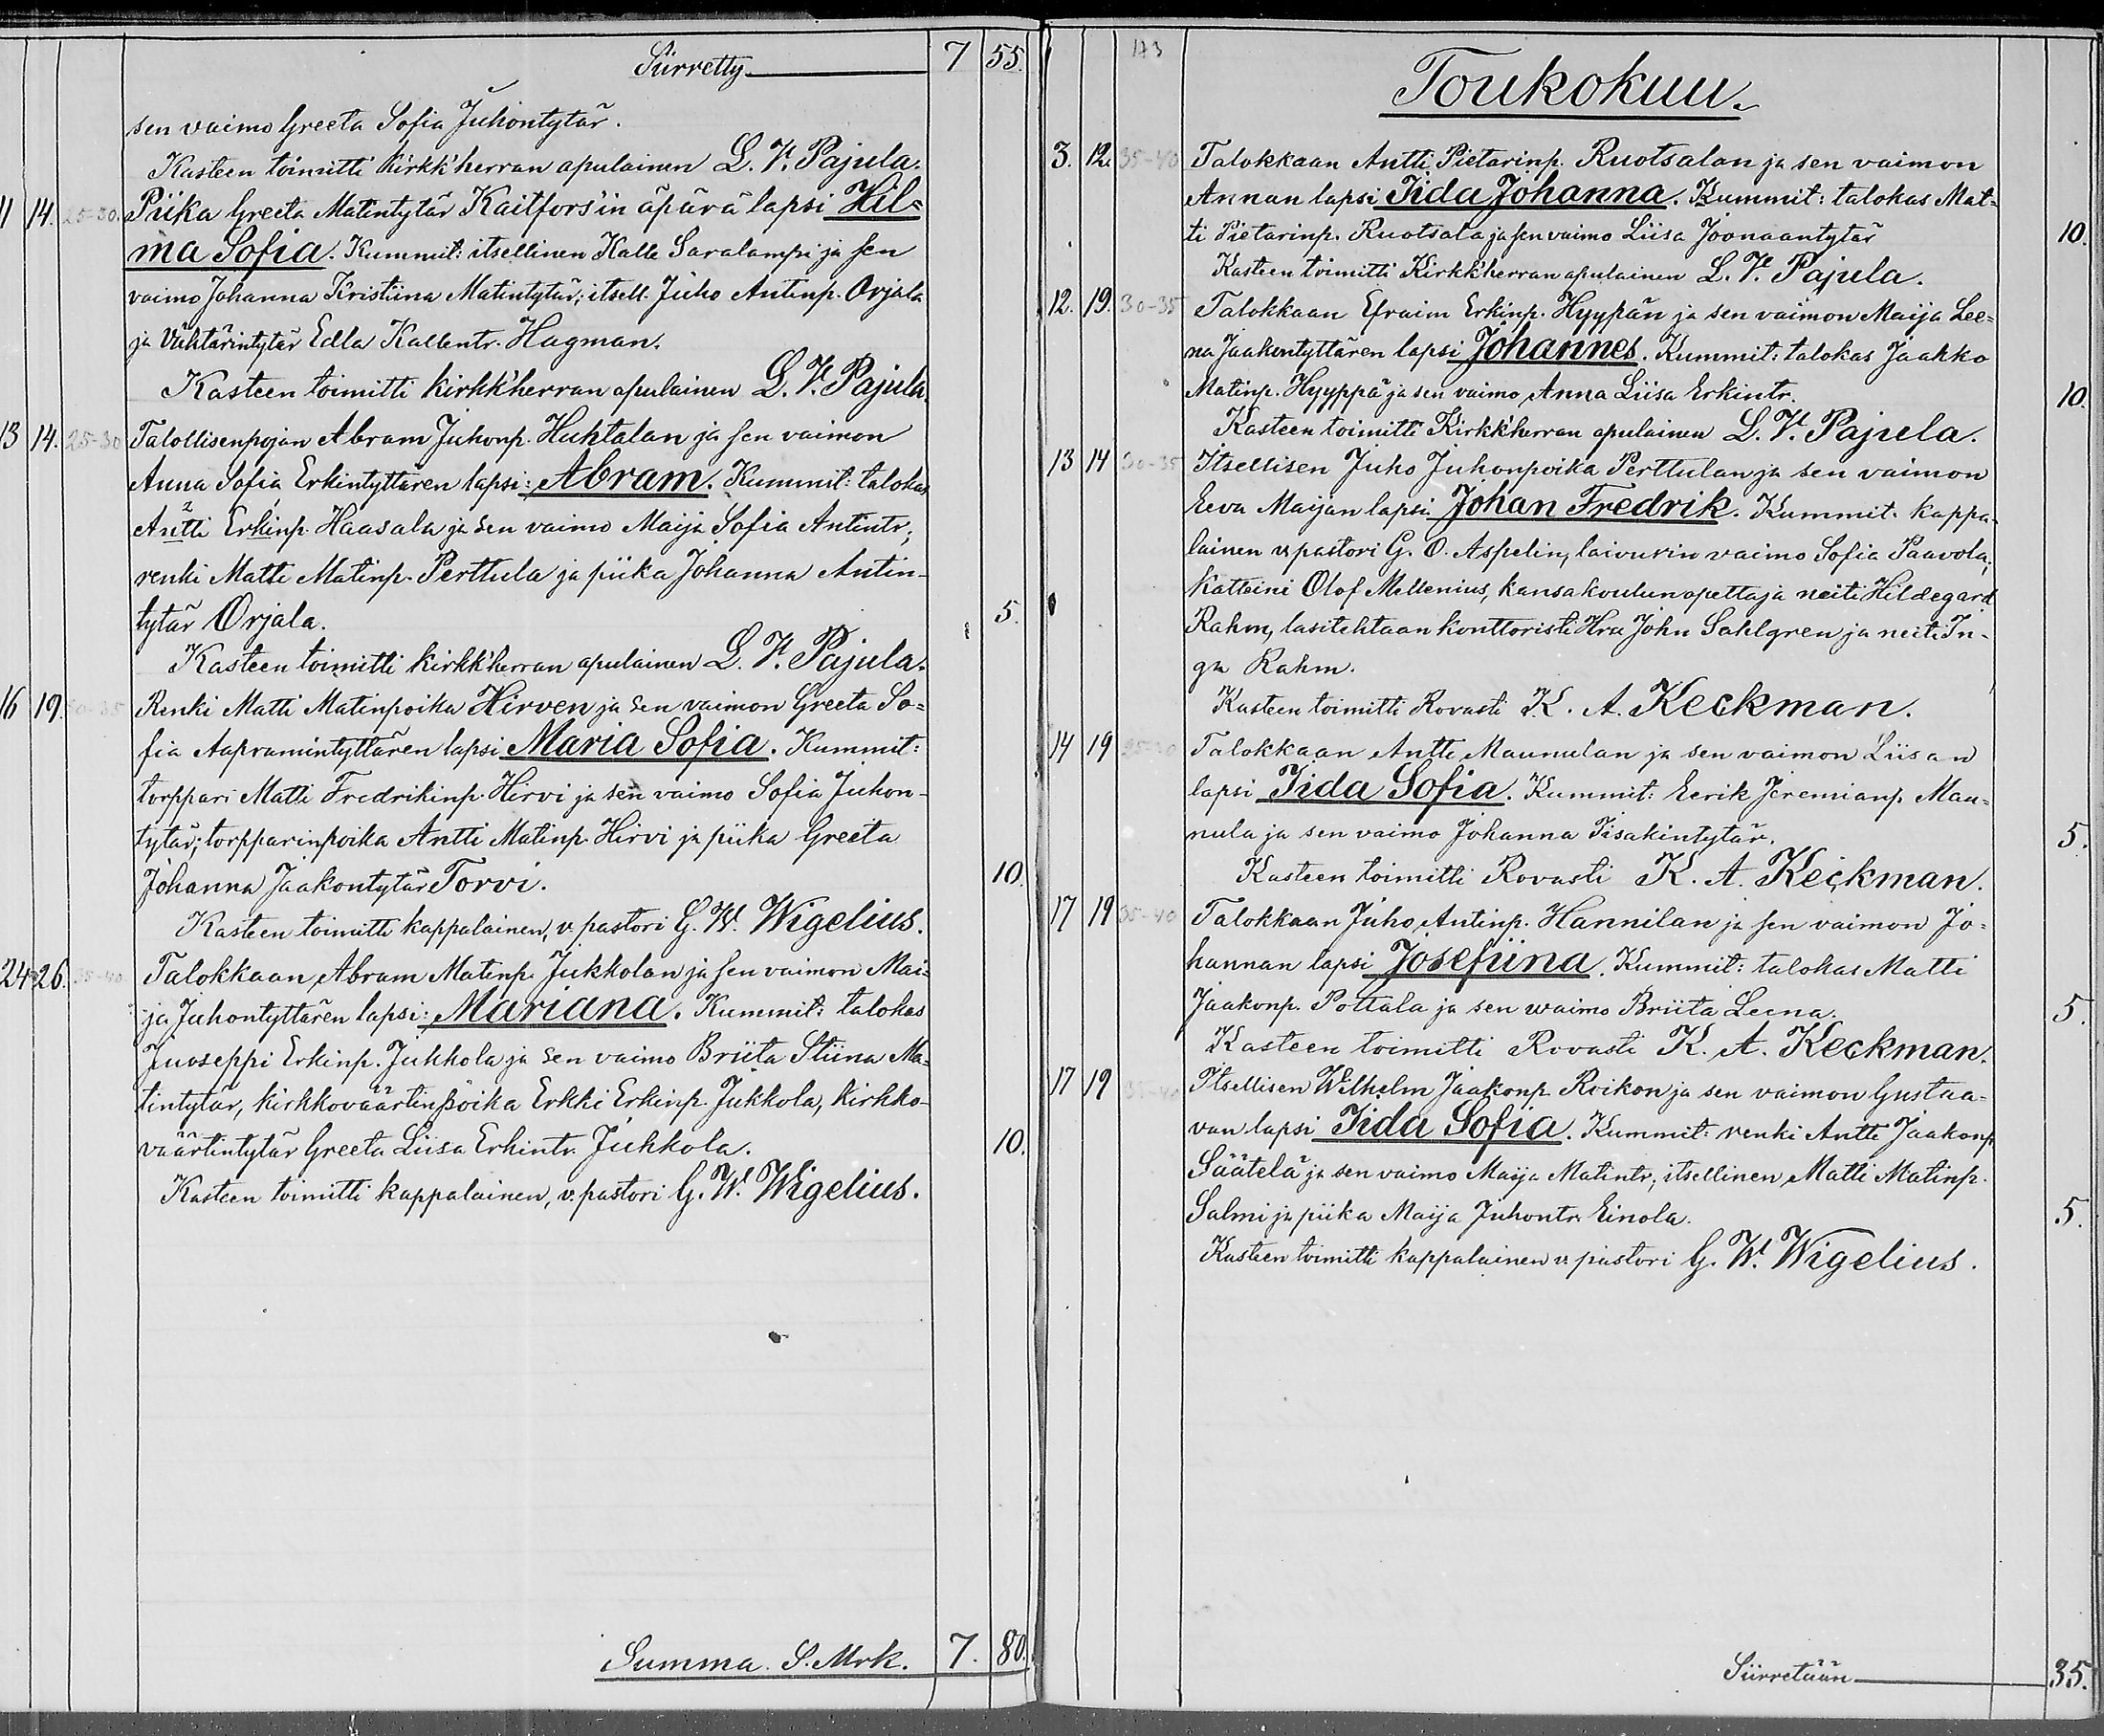 Siirretty 7 55.
sen vaimo Greeta Sofia Juhontytär.
Kasteen toimitti kirkk'herran apulainen L. V. Pajula.
11 14. 25-30. Piika Greeta Matintytär Kaitfors'in äpärä lapsi Hil=
ma Sofia. Kummit: itsellinen Kalle Saralampi ja sen
vaimo Johanna Kristiina Matintytär; itsell. Juho Antinp. Orjala
ja Vahtärintytär Edla Kallentr. Hagman.
Kasteen toimitti kirkk'herran apulainen L. V. Pajula.
13 14. 25-30 Talollisenpojan Abram Juhonp. Huhtalan ja sen vaimon
Anna Sofia Erkintyttären lapsi: Abram. Kummit: talokas
Antti Erkinp. Haasala ja sen vaimo Maija Sofia Antintr;
renki Matti Matinp. Perttula ja piika Johanna Antin-
tytär Orjala. 5.
Kasteen toimitti kirkk'herran apulainen L. V. Pajula.
16 19. 30-35 Renki Matti Matinpoika Hirven ja sen vaimon Greeta So=
fia Aapramintyttären lapsi Maria Sofia. Kummit:
torppari Matti Fredrikinp. Hirvi ja sen vaimo Sofia Juhon-
tytär; torpparinpoika Antti Matinp. Hirvi ja piika Greeta
Johanna Jaakontytär Torvi. 10.
Kasteen toimitti kappalainen, v. pastori G. W. Wigelius.
24 26. 35-40 Talokkaan Abram Matinp. Jukkolan ja sen vaimon Mai=
ja Juhontyttären lapsi: Mariana. Kummit: talokas
Juoseppi Erkinp. Jukkola ja sen vaimo Briita Stiina Ma=
tintytär, kirkkoväärtinpoika Erkki Erkinp. Jukkola, kirkko-
väärtintytär Greeta Liisa Erkintr. Jukkola. 10.
Kasteen toimitti kappalainen, v. pastori G. W. Wigelius.
Summa S. Mrk. 7. 80.
173
Toukokuu.
3. 12. 35-40 Talokkaan Antti Pietarinp. Ruotsalan ja sen vaimon
Annan lapsi Iida Johanna. Kummit: talokas Mat=
ti Pietarinp. Ruotsala ja sen vaimo Liisa Joonaantytär 10.
Kasteen toimitti Kirkk'herran apulainen L. V. Pajula.
12. 19. 30-35 Talokkaan Efraim Erkinp. Hyypän ja sen vaimon Maija Lee=
na Jaakontyttären lapsi Johannes. Kummit: talokas Jaakko
Matinp. Hyyppä ja sen vaimo Anna Liisa Erkintr. 10.
Kasteen toimitti Kirkk'herran apulainen L. V. Pajula.
13 14 30-35 Itsellisen Juho Juhonpoika Perttulan ja sen vaimon
Eeva Maijan lapsi Johan Fredrik. Kummit. kappa-
lainen v. pastori G. O. Aspelin, laivurin vaimo Sofia Paavola;
Katteini Olof Mellenius, kansakoulunopettaja neiti Hildegard
Rahm, lasitehtaan konttoristi Hra John Sahlgren ja neiti In-
ga Rahm.
Kasteen toimitti Rovasti K. A. Keckman.
14 19 Talokkaan Antti Maunulan ja sen vaimon Liisan
lapsi Iida Sofia. Kummit: Eerik Jeremianp. Mau=
nula ja sen vaimo Johanna Iisakintytär. 5.
Kasteen toimitti Rovasti K. A. Keckman.
17 19 35-40 Talokkaan Juho Antinp. Hannilan ja sen vaimon Jo=
hannan lapsi Josefiina. Kummit: talokas Matti
Jaakonp. Pottala ja sen waimo Briita Leena. 5.
Kasteen toimitti Rovasti K. A. Keckman.
17 19 35-40 Itsellisen Wilhelm Jaakonp. Roikon ja sen vaimon Gustaa-
van lapsi Iida Sofia. Kummit: renki Antti Jaakonp.
Säätelä ja sen vaimo Maija Matintr, itsellinen Matti Matinp.
Salmi ja piika Maija Juhontr. Einola. 5.
Kasteen toimitti kappalainen v. pastori G. W. Wigelius.
Siirretään 35.